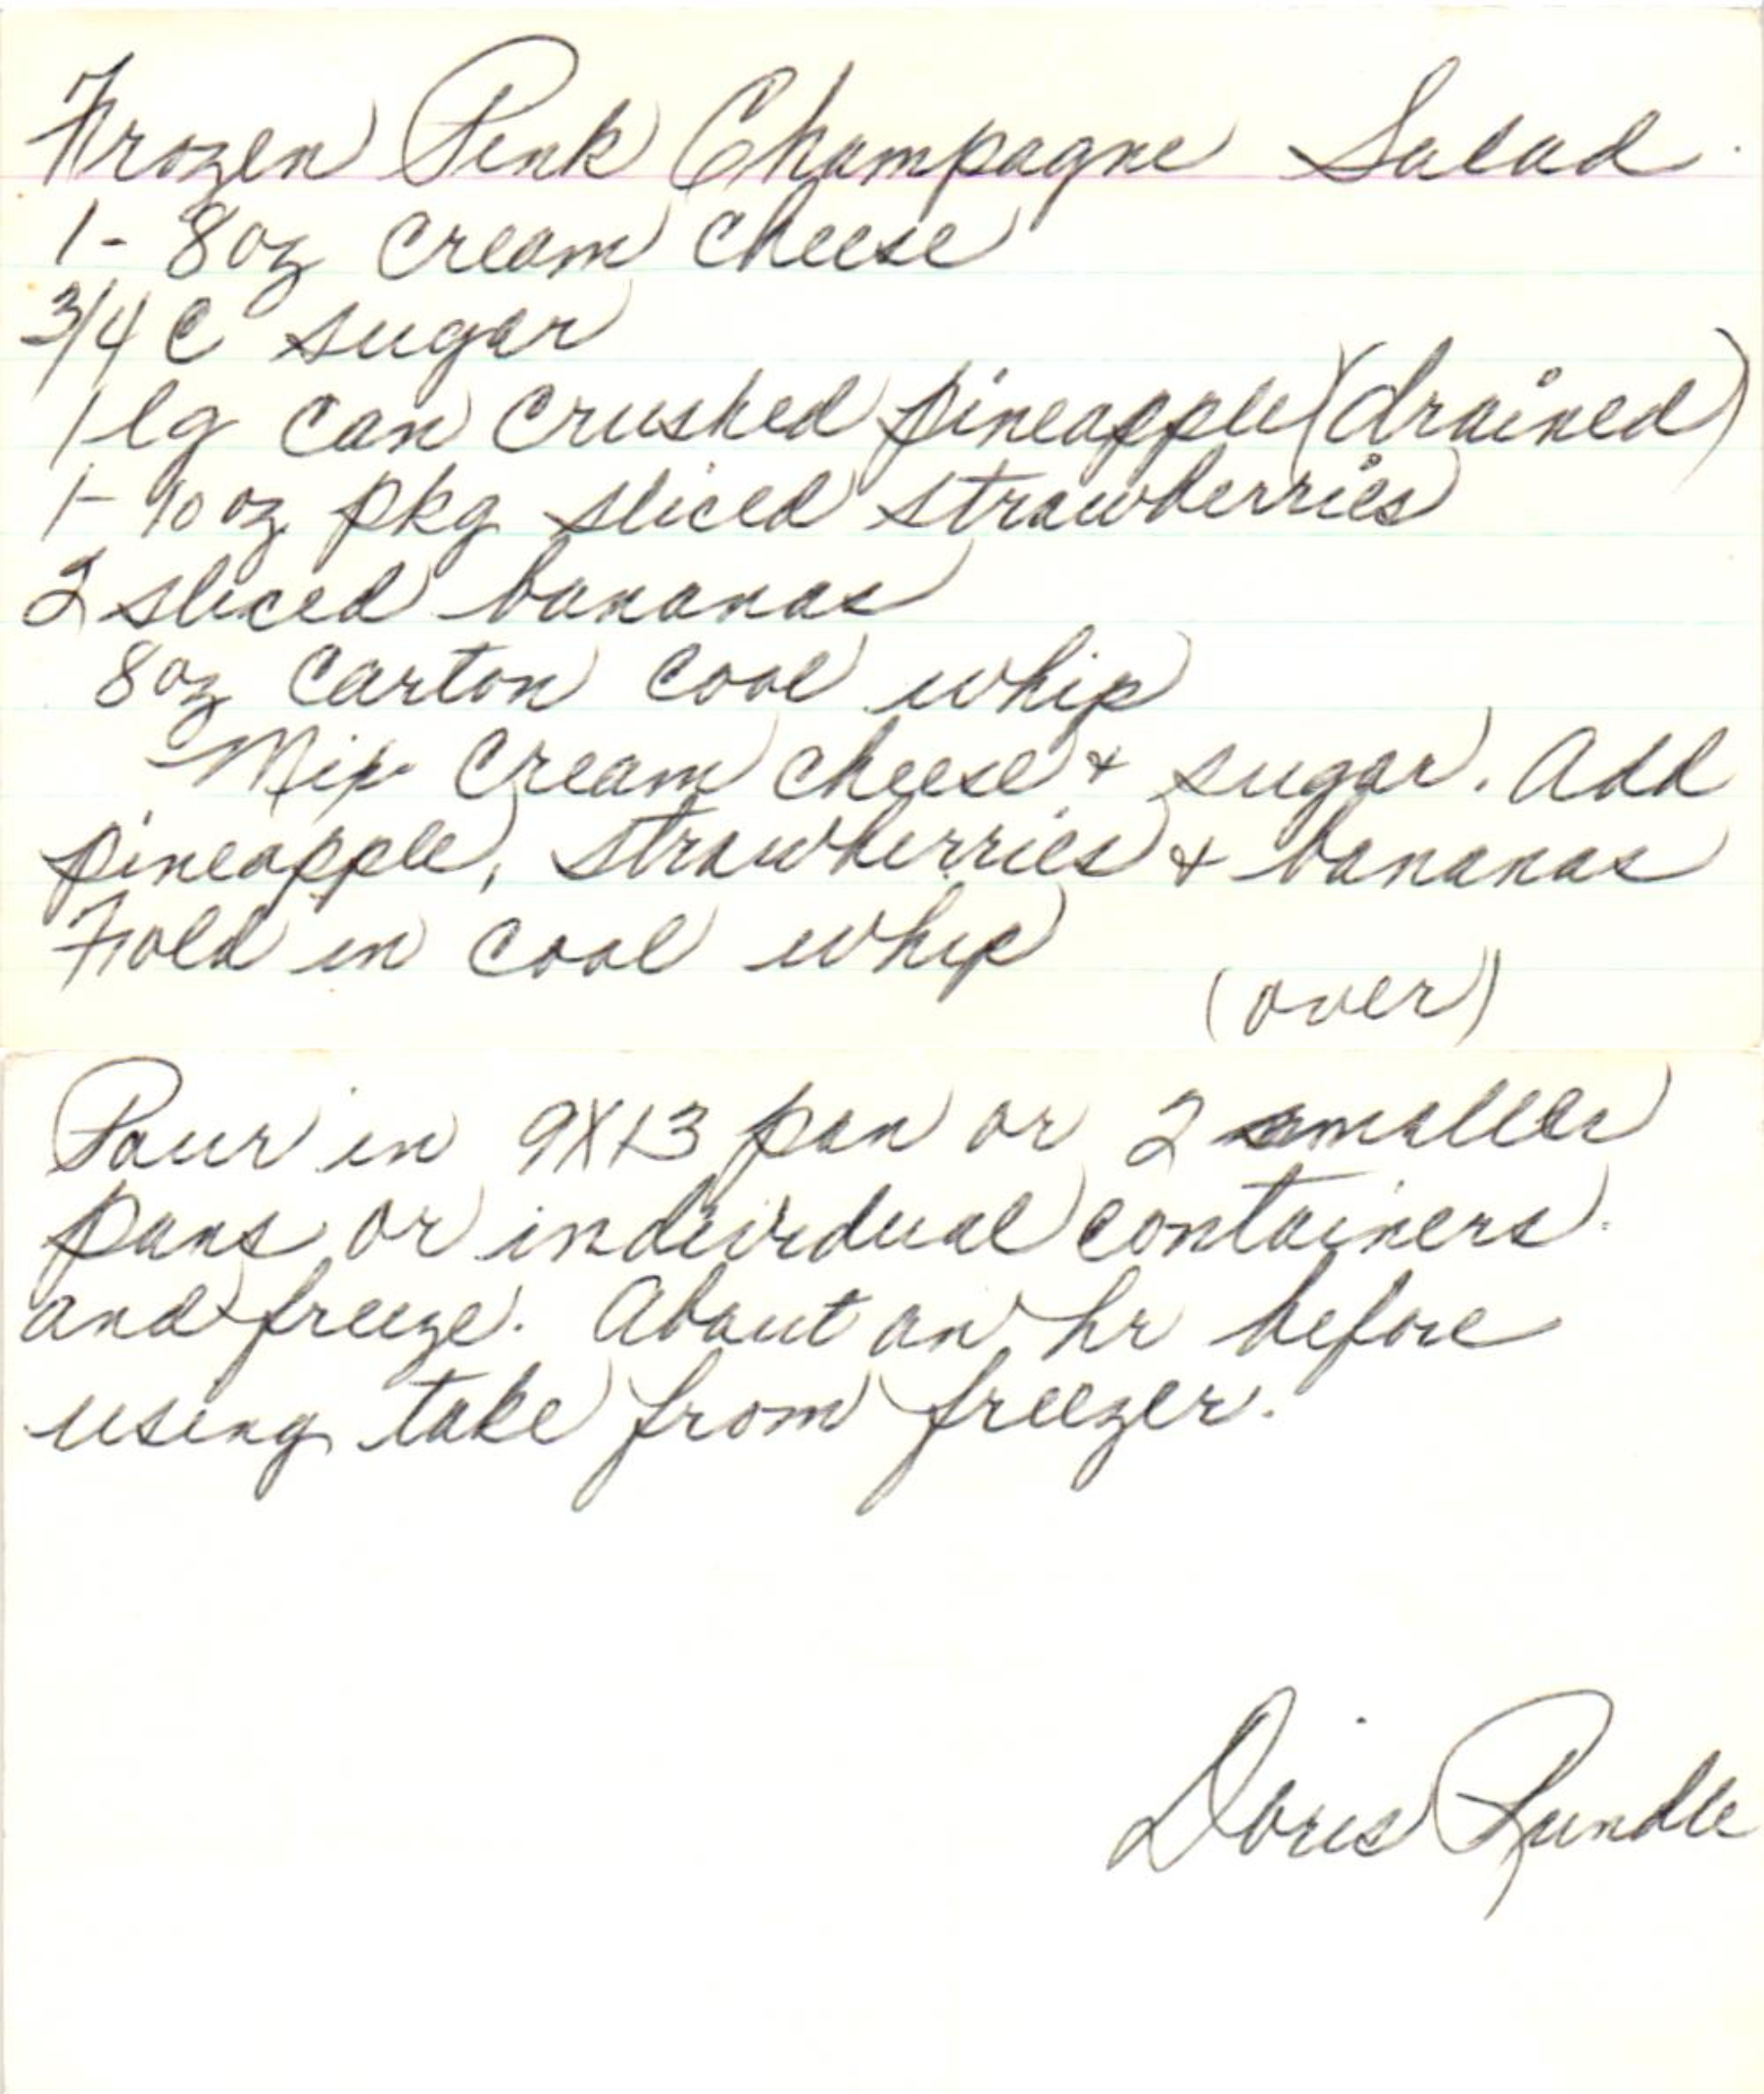 Frozen Pink Champagne Salad
1- 8oz cream cheese
3/4 c sugar
1 lg can crushed pineapple (drained)
1- 10 oz pkg sliced strawberries
2 sliced bananas
8oz carton cool whip
Mix cream cheese + sugar. Add
pineapple, strawberries + bananas
Fold in cool whip
(over)
Pour in 9X13 pan or 2 smaller
pans or individual containers.
and freeze. About an hr before
using take from freezer.
Doris Rundle